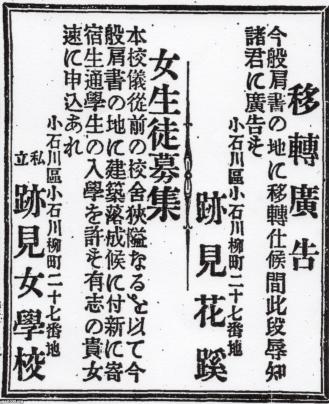 移轉廣告
今般肩書の地に移轉仕候間此段辱知
諸君に廣告す
小石川區小石川柳町二十七番地
跡見花蹊
女生徒募集
本校儀從前の校舍狹隘なるを以て今
般肩書の地に建築落成候に付新に寄
宿生通學生の入學を許す有志の貴女
速に申込あれ
小石川區小石川柳町二十七番地
私立 跡見女學校